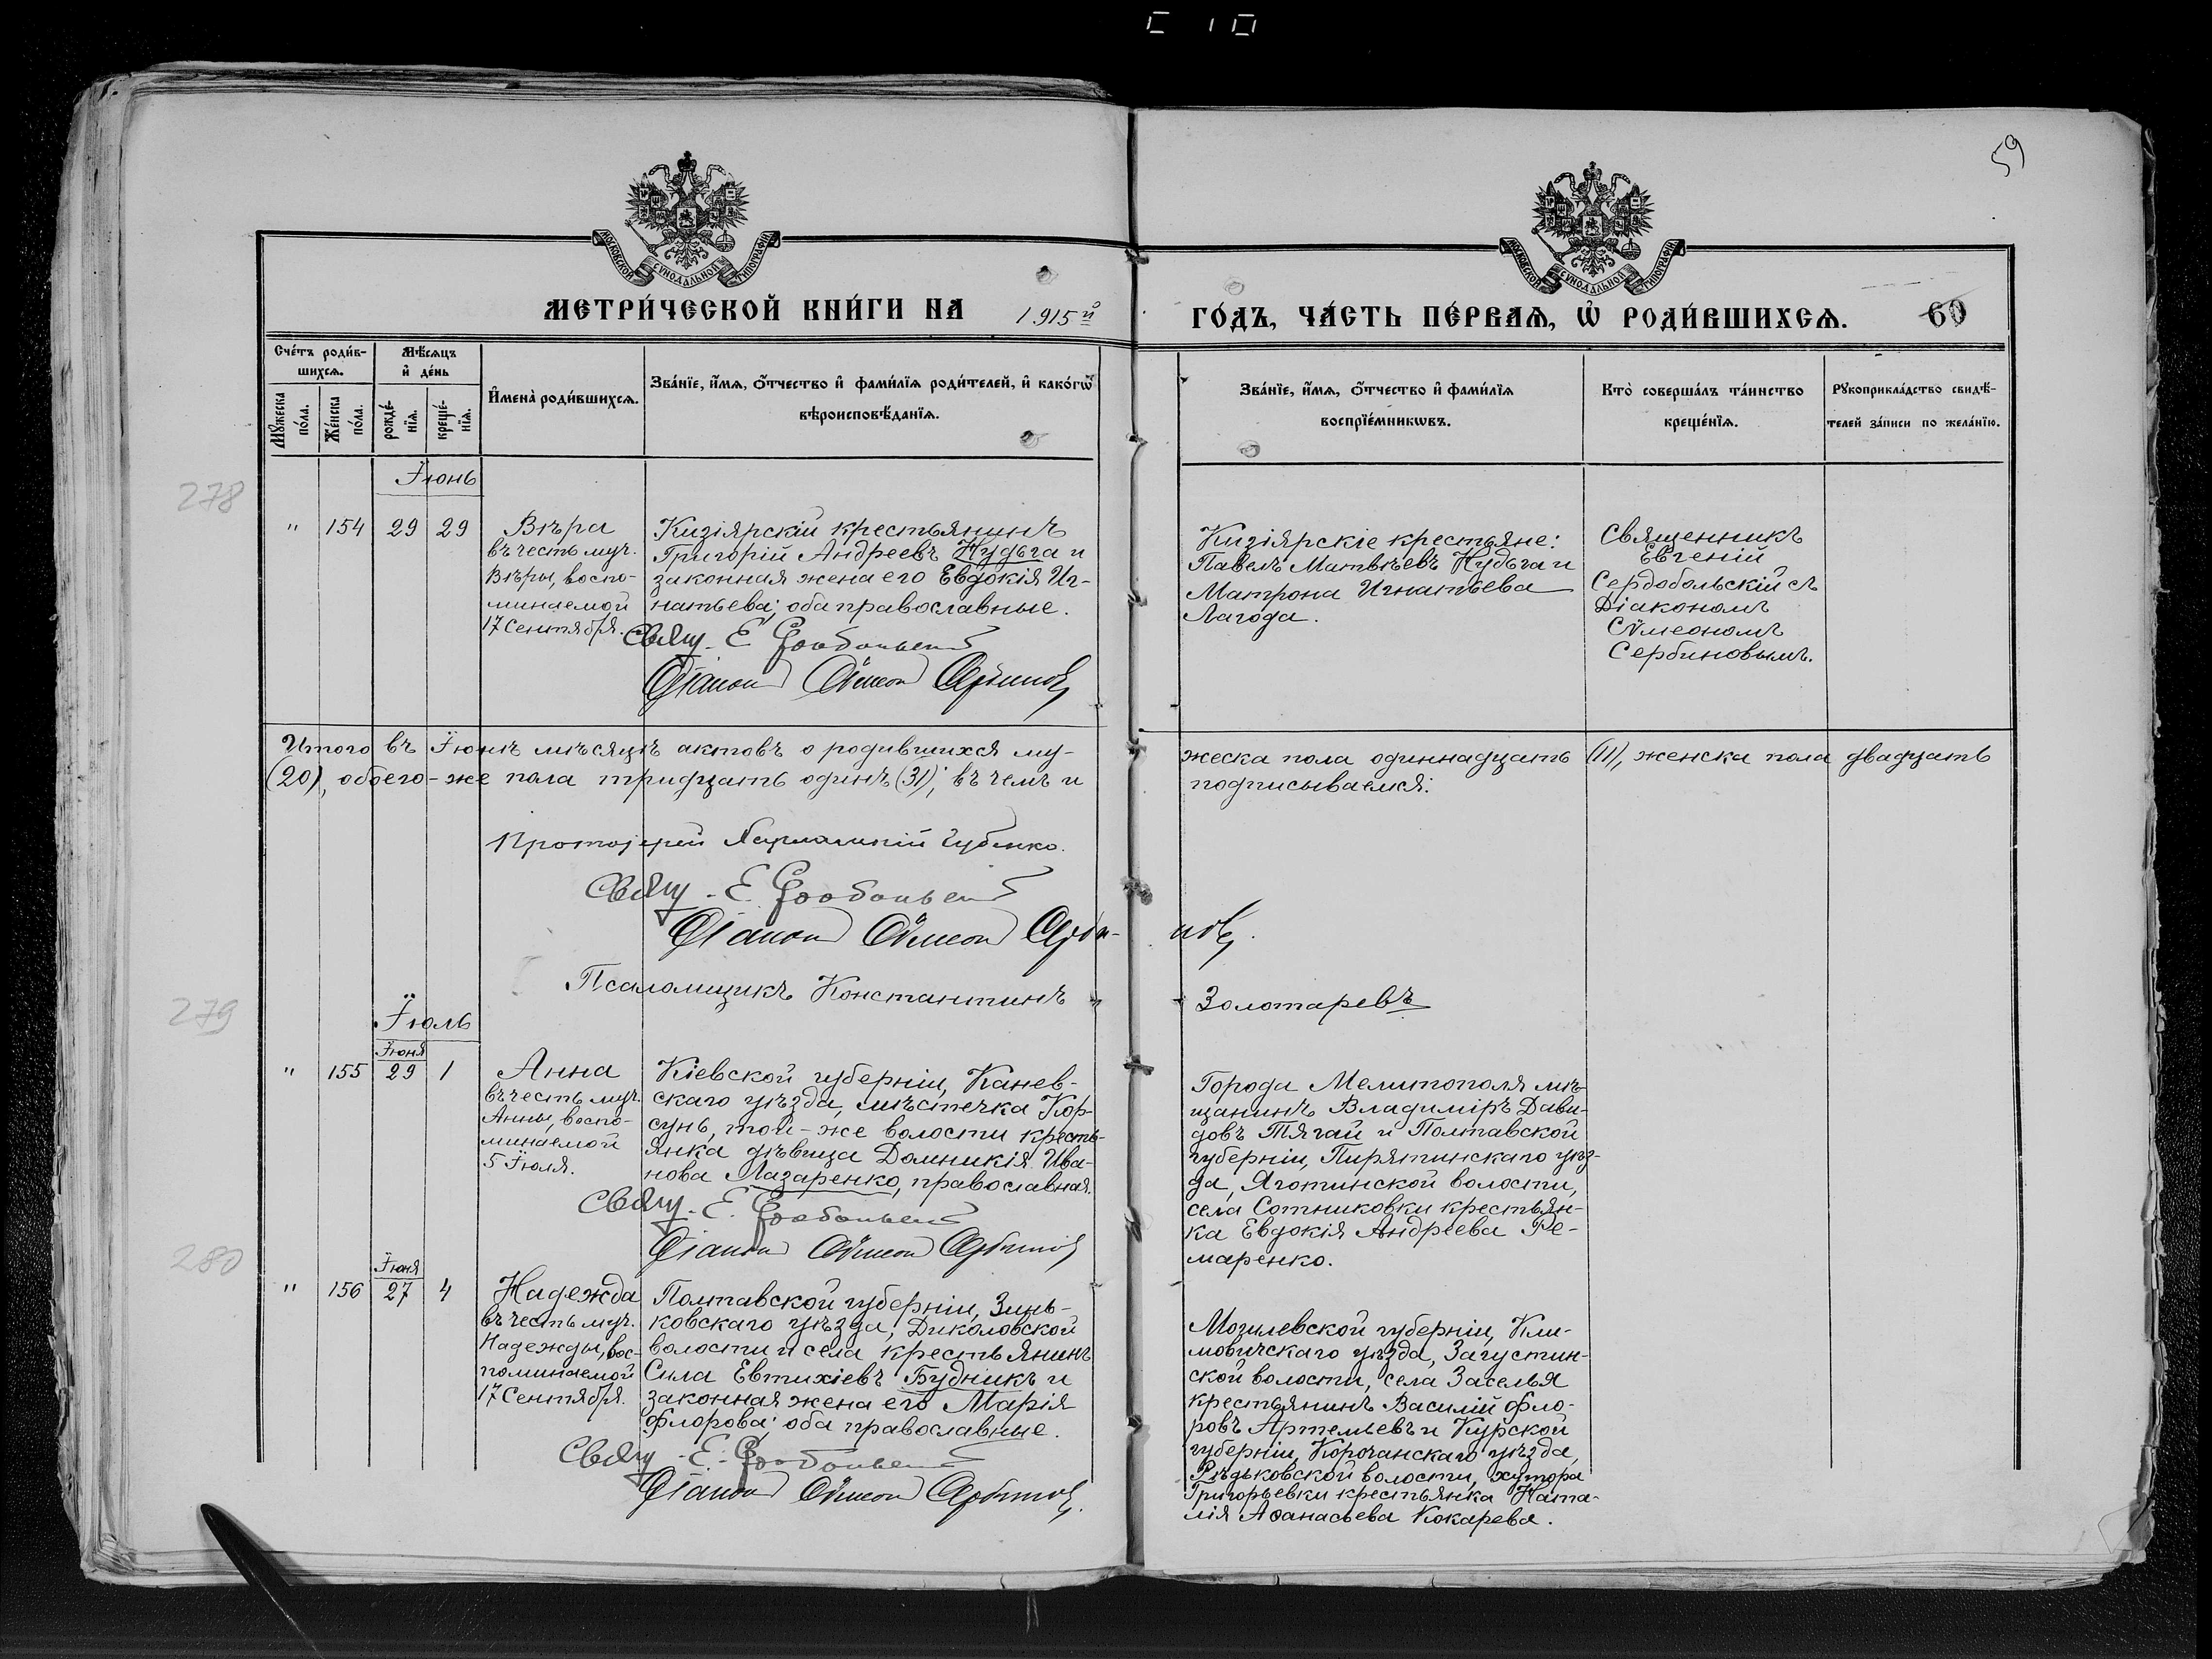 59
МОСКОВСКОЙ СѴНОДАЛЬНОЙ ТИПОГРАФІИ
МОСКОВСКОЙ СѴНОДАЛЬНОЙ ТИПОГРАФІИ
МЕТРИ́ЧЕСКОЙ КНИ́ГИ НА 1915й ГО́ДЪ, ЧА́СТЬ ПЕ́РВАЯ, Ѡ РОДИ́ВШИХСѦ. 60
Сче́тъ роди́в-
шихсѧ.
Мꙋ́жеска
по́ла.
Же́нска
по́ла.
Мѣ́сѧцъ
и҆ де́нь
рожде́-
нїѧ.
креще́-
нїѧ.
И҆мена̀ роди́вшихсѧ.
Зва́нїе, и҆́мѧ, ѻ҆́тчество и҆ фами́лїѧ роди́телей, и҆ како́гѡ
вѣроисповѣ́данїѧ.
Зва́нїе, и҆́мѧ, ѻ҆́тчество и҆ фами́лїѧ
воспрїе́мникѡвъ.
Кто̀ соверша́лъ та́инство
креще́нїѧ.
Рꙋкоприкла́дство свидѣ́-
телей за́писи по жела́нїю.
Іюнь
278
" 154 29 29
Вѣра
въ честь муч.
Вѣры, воспо-
минаемой
17 Сентября.
Кизіярскій крестьянинъ
Григорій Андреевъ Нудьга и
законная жена его Евдокія Иг-
натьева; оба православные.
Свящ. Е. Сердобольскій
Діаконъ Сѵмеонъ Сербиновъ
Кизіярскіе крестьяне:
Павелъ Матвѣевъ Нудьга и
Матрона Игнатьева
Лагода.
Священникъ
Евгеній
Сердобольскій съ
Діакономъ
Сѵмеономъ
Сербиновымъ.
Итого въ Іюнѣ мѣсяцѣ актовъ о родившихся му-
жеска пола одиннадцать (11), женска пола двадцать
(20), обоего-же пола тридцать одинъ (31); въ чемъ и
подписываемся:
Протоіерей Губенко.
Свящ. Е. Сердобольскій
Діаконъ Сѵмеонъ Серби-
новъ.
Псаломщикъ Константинъ
Золотаревъ
279
Іюль
Іюня
" 155 29 1
Анна
въ честь муч.
Анны, воспо-
минаемой
5 Іюля.
Кіевской губерніи, Канев-
скаго уѣзда, мѣстечка Кор-
сунь, той-же волости кресть-
янка дѣвица Домникія Ива-
нова Лазаренко, православная.
Свящ. Е. Сердобольскій
Діаконъ Сѵмеонъ Сербиновъ
Города Мелитополя мѣ-
щанинъ Владиміръ Дави-
довъ Тягай и Полтавской
губерніи, Пирятинскаго уѣз-
да, Яготинской волости,
села Сотниковки крестьян-
ка Евдокія Андреева Ре-
маренко.
280
Іюня
" 156 27 4
Надежда
въ честь муч.
Надежды, вос-
поминаемой
17 Сентября.
Полтавской губерніи, Зинь-
ковскаго уѣзда, Дикаловской
волости и села крестьянинъ
Сила Евтихіевъ Будникъ и
законная жена его Марія
Флорова; оба православные.
Свящ. Е. Сердобольскій
Діаконъ Сѵмеонъ Сербиновъ.
Могилевской губерніи, Кли-
мовичскаго уѣзда, Загустин-
ской волости, села Заселья
крестьянинъ Василій Фло-
ровъ Артемьевъ и Курской
губерніи, Корочанскаго уѣзда,
Рѣдьковской волости, хутора
Григорьевки крестьянка Ната-
лія Аѳанасьева Кокарева.